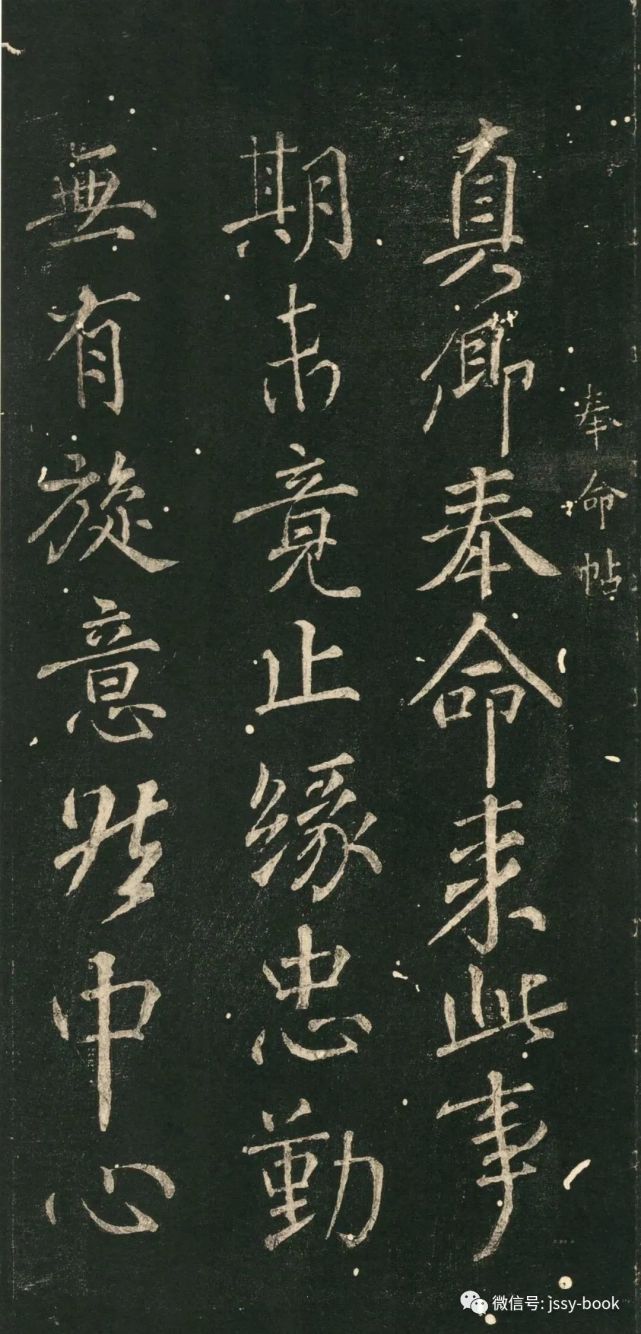 奉命帖
真卿奉命来此事
期未竟止緣忠勤
無有旋意然中心
微信号: jssy-book